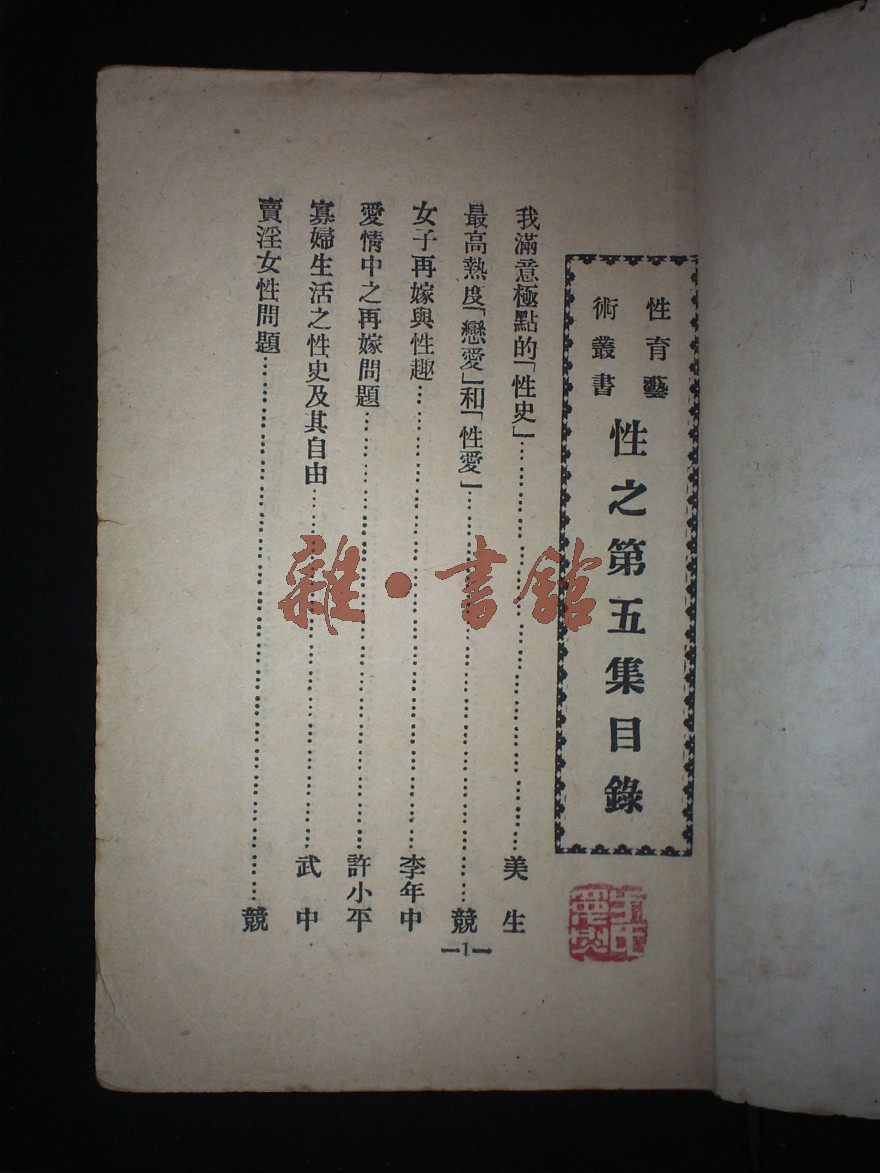 性育藝
術叢書
性之第五集目錄
我滿意極點的「性史」……美生
最高熱度「戀愛」和「性愛」……競
女子再嫁與性趣……李年中
愛情中之再嫁問題……許小平
寡婦生活之性史及其自由……武中
賣淫女性問題……競
—1—
雜·書館